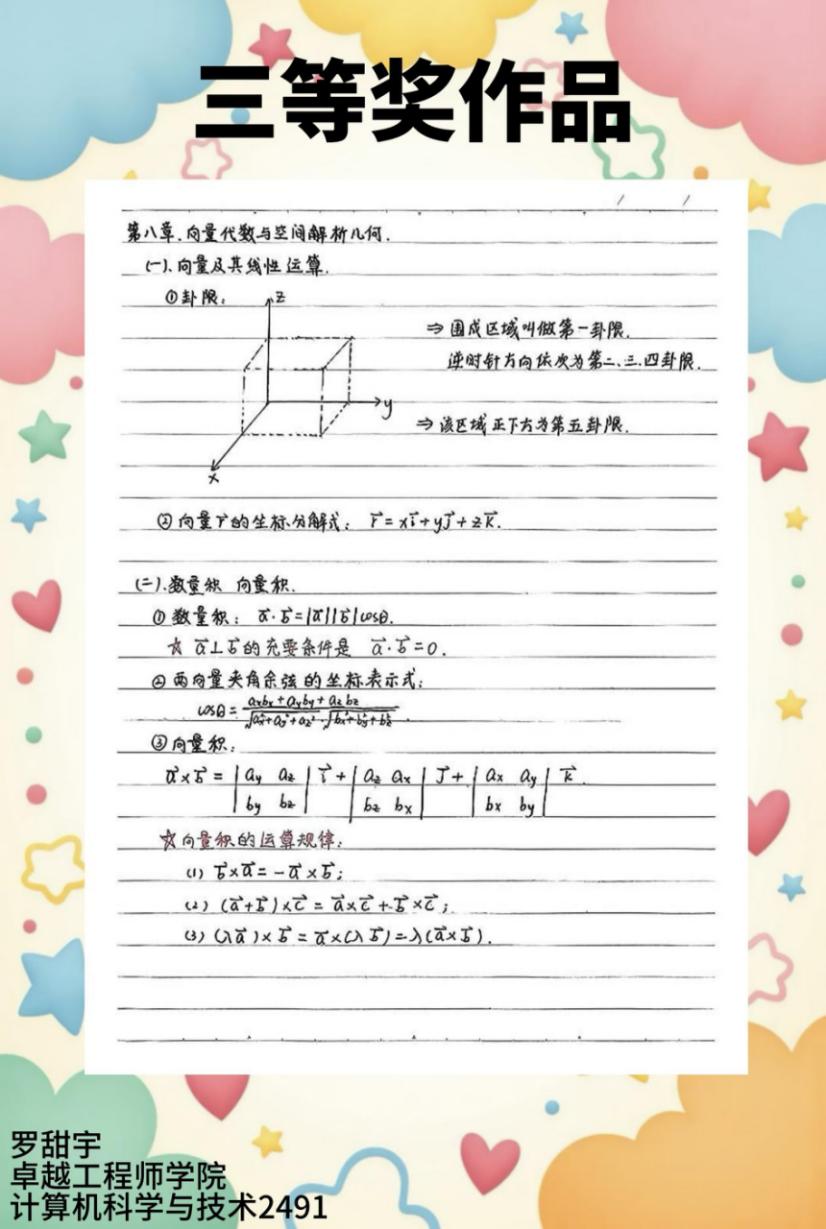 三等奖作品
第八章.向量代数与空间解析几何.
(一).向量及其线性运算.
①卦限:
z
⇒围成区域叫做第一卦限.
逆时针方向依次为第二、三、四卦限.
y
⇒该区域正下方为第五卦限.
x
②向量r的坐标分解式: r⃗=xi⃗+yj⃗+zk⃗.
(二).数量积 向量积.
①数量积: a⃗·b⃗=|a⃗||b⃗|cosθ.
☆ a⃗⊥b⃗的充要条件是 a⃗·b⃗=0.
②两向量夹角余弦的坐标表示式:
cosθ= (axbx+ayby+azbz) / (√(ax²+ay²+az²)·√(bx²+by²+bz²))
③向量积:
a⃗×b⃗ = | ay az | i⃗ + | az ax | j⃗ + | ax ay | k⃗.
| by bz | | bz bx | | bx by |
☆向量积的运算规律:
(1) b⃗×a⃗=-a⃗×b⃗;
(2) (a⃗+b⃗)×c⃗=a⃗×c⃗+b⃗×c⃗;
(3) (λa⃗)×b⃗=a⃗×(λb⃗)=λ(a⃗×b⃗).
罗甜宇
卓越工程师学院
计算机科学与技术2491